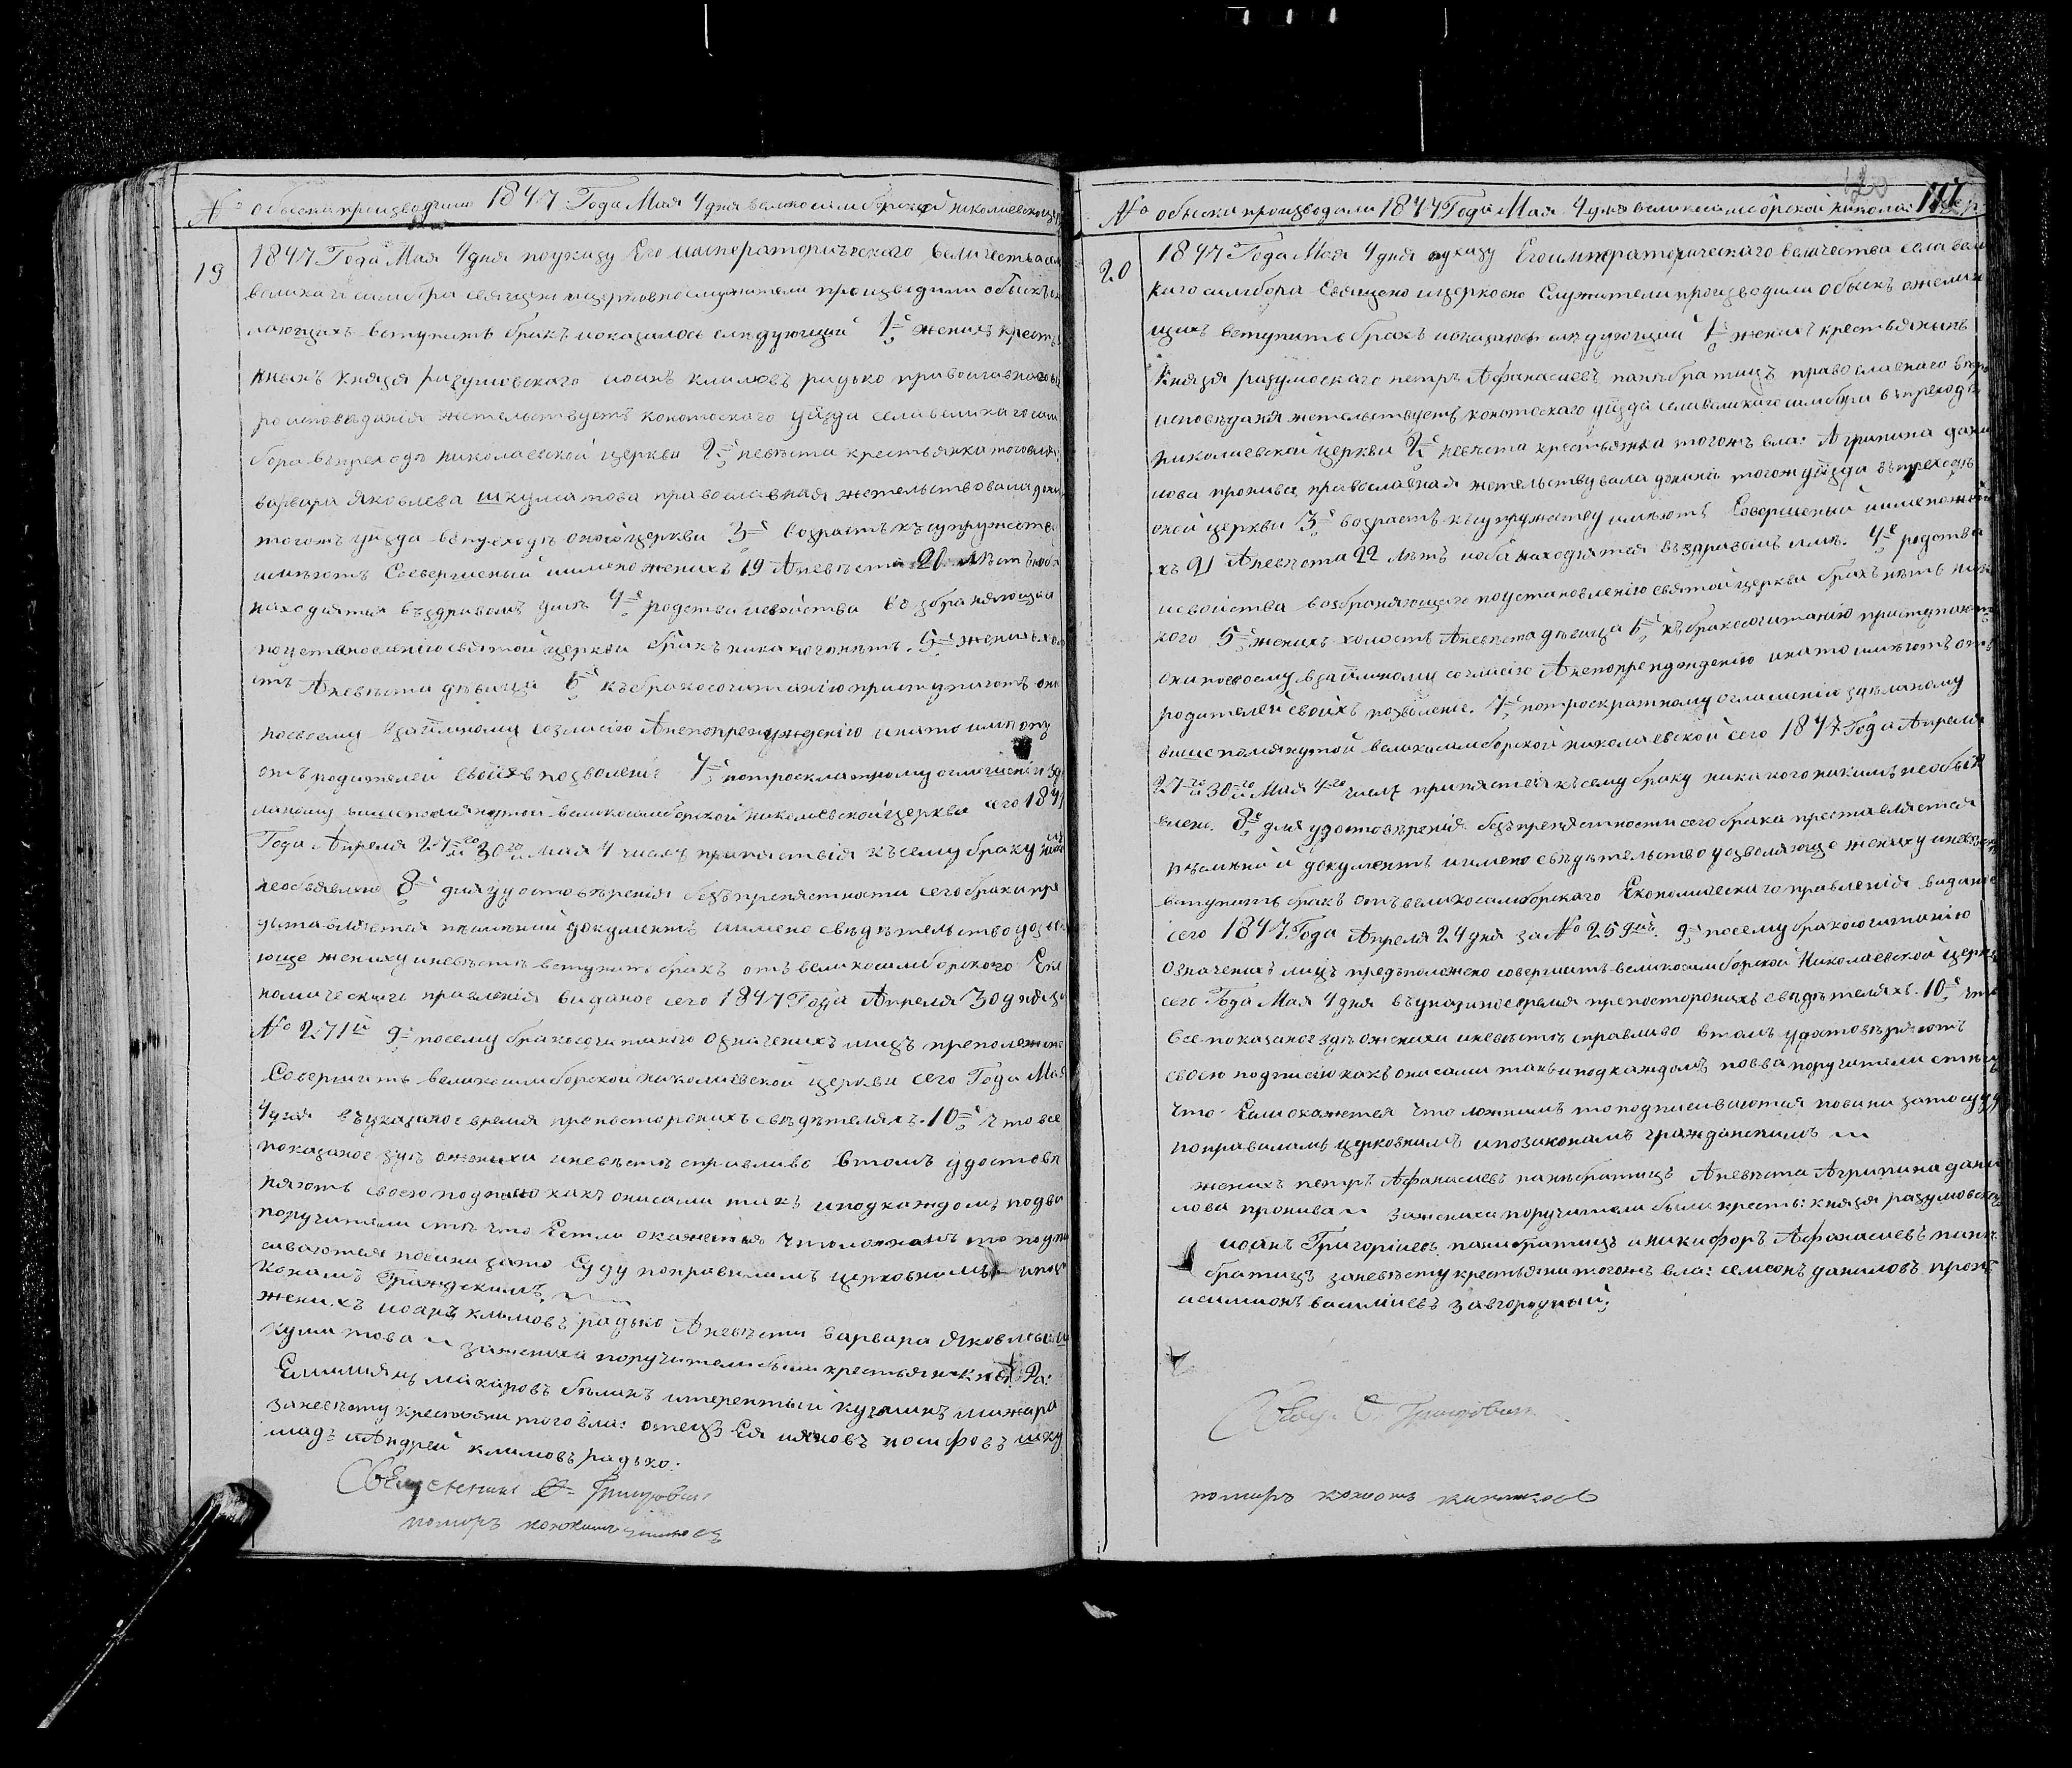 № обыски производили 1847 Года Мая 4 дня великосамборской николаевской
19
1847 Года Мая 4 дня поуказу Его императорическаго величества
великаго самбора священо ицерковнослужители производили обыскъ
лающихъ вступить бракъ ноказалось слѣдующий 1е женихъ кресть
янынъ князя разумовского иоанъ климовъ радько православнаго
роисповѣданія жетельствуетъ конотоского уѣзда села великаго сам
бора въ преходѣ николаевской церкви 2е невѣста крестьянка тогожвла:
варвара яковлева шкуматова православная жетельствовала доны
тогожъ уѣзда въ преходѣ оной церкви 3е возрастъ къ супружеств
имѣютъ Совершеный имено женихъ 19 Аневѣста 21 лѣтъ иоба
находятся въздравомъ умѣ 4е родства исвойства возбраняющаи
поустановлению святой церкви бракъ никакогонѣтъ. 5е женихъ холо
стъ Аневѣста дѣвица 6е къ бракосочитанію приступаютъ они
посвоему взаимному согласію Анепопренуждению инато имѣютъ
отъ родителей своихъ позволение 7е потроекратному оглашенію здѣ
ланому вишепомянутой великосамборской николаевской церкви сего 184
Года Апреля 27го и 30го и мая 4 числъ припятствія къ сему браку
необявлено 8е для удостовѣренія безъ препятности сего брака пре
дставляется писмений документъ имено свѣдѣтельство дозволя
юще жениху иневѣстѣ вступить бракъ отъ великосамборского Эко
номическаго правления виданое сего 1847 Года Апреля 30 дня за
№ 271й 9е посему бракосочитанію означенихъ лицъ преположено
Совершить великосамборской николаевской церкви сего Года Мая
4 дня въуказаное время препосторонихъ свѣдѣтеляхъ. 10е что все
показаное здѣ ожениха иневѣстѣ справливо втомъ удостовѣ
ряютъ своею подписю какъ описами такъ иподкаждомъ подва
поручители стѣ что Естли окажется что ложнимъ то подпи
сиваются повини зато Суду поправиламъ церковнимъ ипоза
конамъ Граждскимъ.
женихъ иоанъ климовъ радько Аневѣста варвара яковлева ш
куматова ~ зажениха поручители были крестьяни кня: Ра:
Емилиянъ макаровъ билакъ итерентий кузминъ
заневѣсту крестьяни тоговла: отецъ Ея яковъ иосифовъ шку
мадъ иАндрей климовъ радько:
Священникъ
понмарь
120
117
№ обыски производили 1847 Года Мая 4 дня великосамборской никола: цер
20
1847 Года Мая 4 дня поуказу Егоимператорическаго величества села вели
каго самбора Священо ицерковно Служители производили обыскъ ожелаю
щихъ вступить бракъ ноказалось слѣдующий 1е женихъ крестьянынъ
Князя разумоского петръ Афанасиевъ панибратецъ православнаго вѣро
исповѣданія жетельствуетъ конотоскаго уѣзда села великаго самбора въ преходѣ
николаевской церкви 2е невѣста крестьянка тогожъ вла: Агрипина дани
лова пронива православная жетельствувала донинѣ тогож уѣзда въ преходѣ
оной церкви 3е возрастъ къ супружеству имѣютъ Совершеный имено жени
хъ 21 Аневѣста 22 лѣтъ иоба находятся въздравомъ умѣ. 4е родства
исвойства возбраняющаго поустановлению святой церкви бракъ нѣтъ ника
кого 5е женихъ холостъ Аневѣста дѣвица 6е къ бракосочитанію приступаютъ
они посвоему взаимному согласію Анепопренуждению инато имѣютъ отъ
родителей своихъ позволение. 7е потроекратному оглашенію здѣланому
вишепомянутой великосамборской николаевской сего 1847 Года Апреля
27го и 30го и Мая 4го числъ припятствія къ сему браку никакого никимъ необъя
влено. 8е для удостовѣренія безъпрепятности сего брака преставляется
писмяный документъ имено свѣдѣтельство дозволяюще жениху иневѣстѣ
вступить бракъ отъ великосамборского Економическаго правленія видание
сего 1847 Года Апреля 24 дня за № 259мъ. 9е посему бракосочитанію
Означенихъ лицъ предположено совершить великосамборской Николаевской церкви
сего Года Мая 4 дня въуказаное время препосторонихъ свѣдѣтеляхъ. 10е что
все показаное здѣ ожениха иневѣстѣ справливо втомъ удостовѣряютъ
своею подписію какъ описами такъ иподкаждомъ подва поручители стѣмъ
что Если окажется что ложнимъ то подписиваются повини зато суду
поправиламъ церковнимъ ипозаконамъ гражданскимъ ~
женихъ петръ Афанасиевъ панибратецъ Аневѣста Агрипина дани
лова пронива ~ зажениха поручители были кресть: князя разумовского
иоанъ Григориевъ панибратецъ иникифоръ Афанасиевъ пани
братецъ заневѣсту крестьяни тогожъ вла: семионъ даниловъ прон
исимионъ василиевъ завгородный.
понмарь